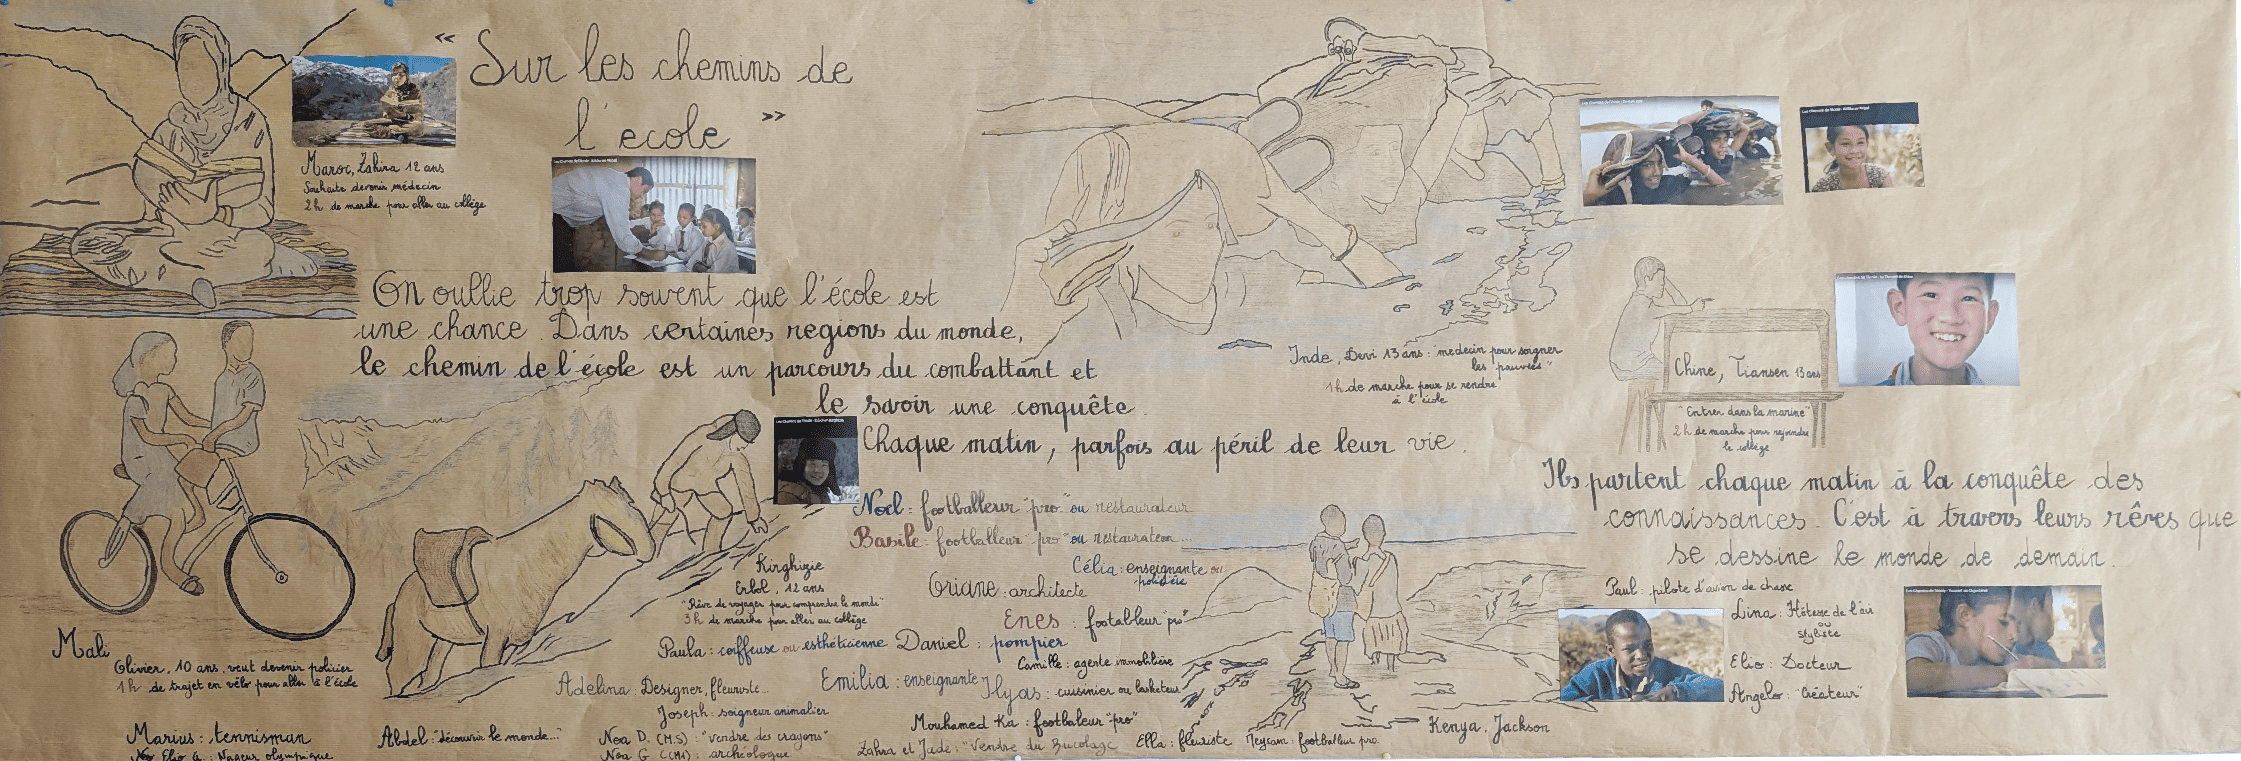 " Sur les chemins de
l'ecole "
Maroc, Zahira 12 ans
Souhaite devenir médecin
2h de marche pour aller au collège
On oullie trop souvent que l'école est
une chance. Dans certaines regions du monde,
le chemin de l'école est un parcours du combattant et
le savoir une conquête.
Chaque matin, parfois au péril de leur vie.
Inde, Devi 13 ans : medecin pour soigner
les "pauvres"
1h de marche pour se rendre
à l'école
Chine, Tiansen 13 ans
"Entrer dans la marine"
2h de marche pour rejoindre
le collège
Ils partent chaque matin à la conquête des
connaissances. C'est à travers leurs rêves que
se dessine le monde de demain.
Mali
Olivier, 10 ans, veut devenir policier
1h de trajet en vélo pour aller à l'école
Kirghizie
Erbol, 12 ans
"Rêve de voyager pour comprendre le monde"
3h de marche pour aller au collège
Noel : footballeur "pro" ou restaurateur
Basile : footballeur "pro" ou restaurateur...
Célia : enseignante ou
policière
Oriane : architecte
Enes : footballeur "pro"
Paula : coiffeuse ou esthéticienne
Daniel : pompier
Camille : agente immobilière
Adelina : Designer, fleuriste...
Emilia : enseignante
Ilyas : cuisinier ou basketeur
Joseph : soigneur animalier
Mouhamed Ka : footbaleur "pro"
Marius : tennisman
Elio G : Nageur olympique
Abdel : "découvrir le monde..."
Noa D. (M.S) : "vendre des crayons"
Noa G (CM1) : archéologue
Zahra et Jade : "Vendre du Bricolage
Ella : fleuriste
Meysam : footballeur pro.
Kenya, Jackson
Paul : pilote d'avion de chasse
Lina : Hôtesse de l'air
ou
styliste
Elio : Docteur
Angelo : "Créateur"